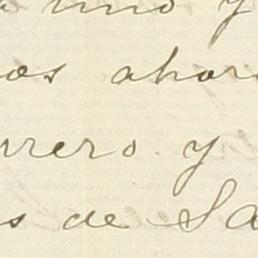 uno y
os ahor
rrero y
s de Sa